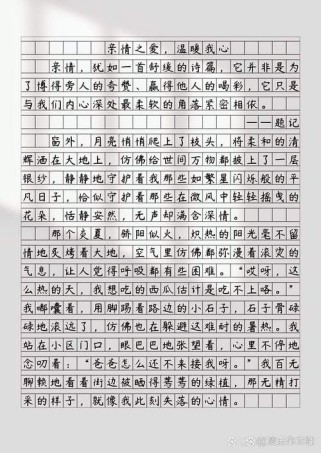 亲情之爱，温暖我心
亲情，犹如一首舒缓的诗篇，它并非是为
了博得旁人的夸赞、赢得他人的喝彩，它只是
与我们内心深处最柔软的角落紧密相依。
——题记
窗外，月亮悄悄爬上了枝头，将柔和的清
辉洒在大地上，仿佛给世间万物都披上了一层
银纱，静静地守护着我那些如繁星闪烁般的平
凡日子，恰似守护着那些在微风中轻轻摇曳的
花朵，恬静安然，无声却满含深情。
那个炎夏，骄阳似火，炽热的阳光毫不留
情地炙烤着大地，空气里仿佛都弥漫着滚烫的
气息，让人觉得呼吸都有些困难。“哎呀，这
么热的天，我想吃的西瓜估计是吃不上咯。”
我嘟囔着，用脚踢着路边的小石子，石子骨碌
碌地滚远了，仿佛也在躲避这难耐的暑热。我
站在小区门口，眼巴巴地张望着，心里不停地
念叨着：“爸爸怎么还不来接我呀。”我百无
聊赖地看着街边被晒得蔫蔫的绿植，那无精打
采的样子，就像我此刻失落的心情。